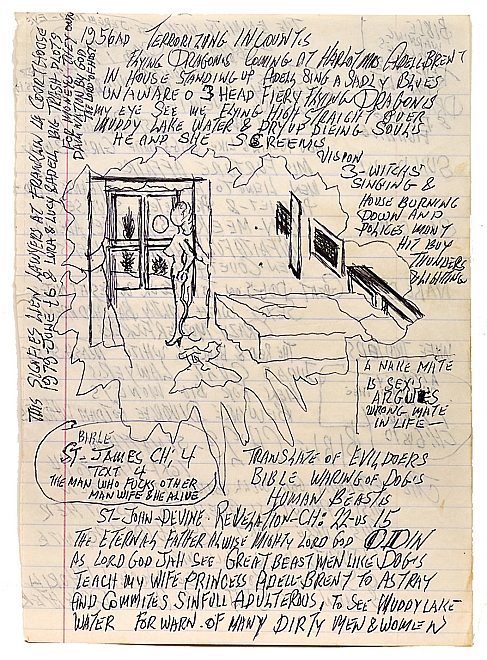 1956AD TERRORIZING INCOUNTS
FLYING DRAGONS COMING AT HARLOT MRS ADELL BRENT
IN HOUSE STANDING UP ADELL SING A SADLY BLUES
UNAWARE O 3 HEAD FIERY FLYING DRAGONS
MY EYE SEE WE FLYING HIGH STRAIGHT OVER
MUDDY LAKE WATER & DRY UP DIEING SOULS
HE AND SHE SCREEMS
VISION
3-WITCHS
SINGING &
HOUSE BURNING
DOWN AND
POLICES MANY
HIT BUY
THUNDERS
& LIGHTING
THIS SIGNFIES WEN LAWYERS AT FRANKLIN CO COURTHOUSE
1979-JUNE 16 & LUGA & LUCY BADELL BIG TRASH PLOTS
FOR MONEY THEY
DAMNATION BY GOD
THE LORD OF HOST
A NAKE MATE
IS SEX'S
ARGUES
WRONG MATE
IN LIFE
BIBLE
ST-JAMES CH: 4
TEXT 4
THE MAN WHO FUCKS OTHER
MAN WIFE & HE ALIVE
TRANSLATE OF EVILDOERS
BIBLE WARING OF DOGIS
HUMAN BEASTIS
ST-JOHN-DEVINE. REVELATION-CH: 22-VS 15
THE ETERNAL FATHER ALWISE MIGHTY LORD GOD ODIN
AS LORD GOD JAH SEE GREAT BEAST MEN LIKE DOGIS
TEACH MY WIFE PRINCESS ADELL BRENT TO ASTRAY
AND COMMITES SINFULL ADULTEROUS, TO SEE MUDDY LAKE
WATER FOR WARN-OF MANY DIRTY MEN & WOMEN